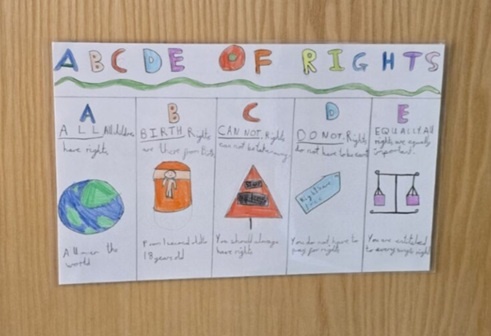 ABCDE OF RIGHTS
A
ALL All children
have rights
All over the
world
B
BIRTH Rights
are there from Birth
18 years old
C
CAN NOT Rights
can not be taken away
You should always
have rights
D
DO NOT Rights
do not have to be
You do not have to
pay for rights
E
EQUALLY All
rights are equally
important.
You are entitled
to every single right